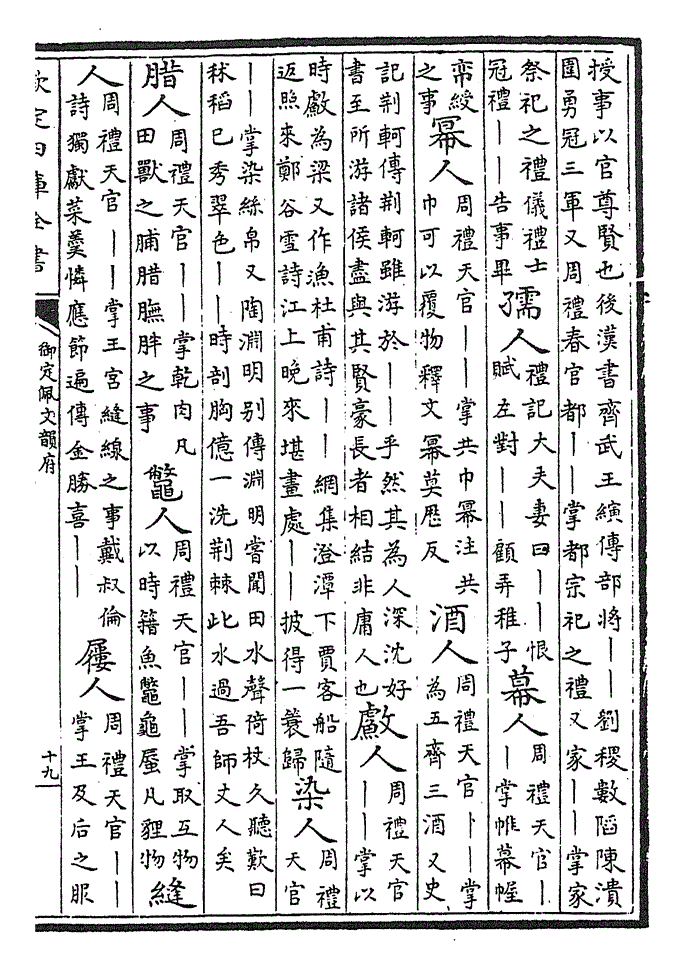 授事以官尊賢也後漢書齊武王縯傳部將――劉稷數䧟陳潰
圍勇冠三軍又周禮春官都――掌都宗祀之禮又家――掌家
祭祀之禮儀禮士
冠禮――告事畢
孺人
禮記大夫妻曰――恨
賦左對――顧弄稚子
幕人
周禮天官―
―掌帷幕幄
帟綬
之事
冪人
周禮天官――掌共巾冪注共
巾可以覆物釋文冪莫歷反
酒人
周禮天官――掌
為五齊三酒又史
記荆軻傳荆軻雖游於――乎然其為人深沈好
書至所游諸侯盡與其賢豪長者相結非庸人也
䱷人
周禮天官
――掌以
時䱷為梁又作漁杜甫詩――網集澄潭下賈客船隨
返照來鄭谷雪詩江上晚來堪畫處――披得一簑歸
染人
周禮
天官
――掌染絲帛又陶淵明别傳淵明嘗聞田水聲倚杖久聽歎曰
秫稻已秀翠色――時剖胸億一洗荆棘此水過吾師丈人矣
腊人
周禮天官――掌乾肉凡
田獸之脯腊膴胖之事
鼈人
周禮天官――掌取互物
以時籍魚鼈龜蜃凡貍物
縫
人
周禮天官――掌王宮縫線之事戴叔倫
詩獨獻菜羹憐應節遍傳金勝喜――
屨人
周禮天官――
掌王及后之服
欽定四庫全書
御定佩文韻府
十九